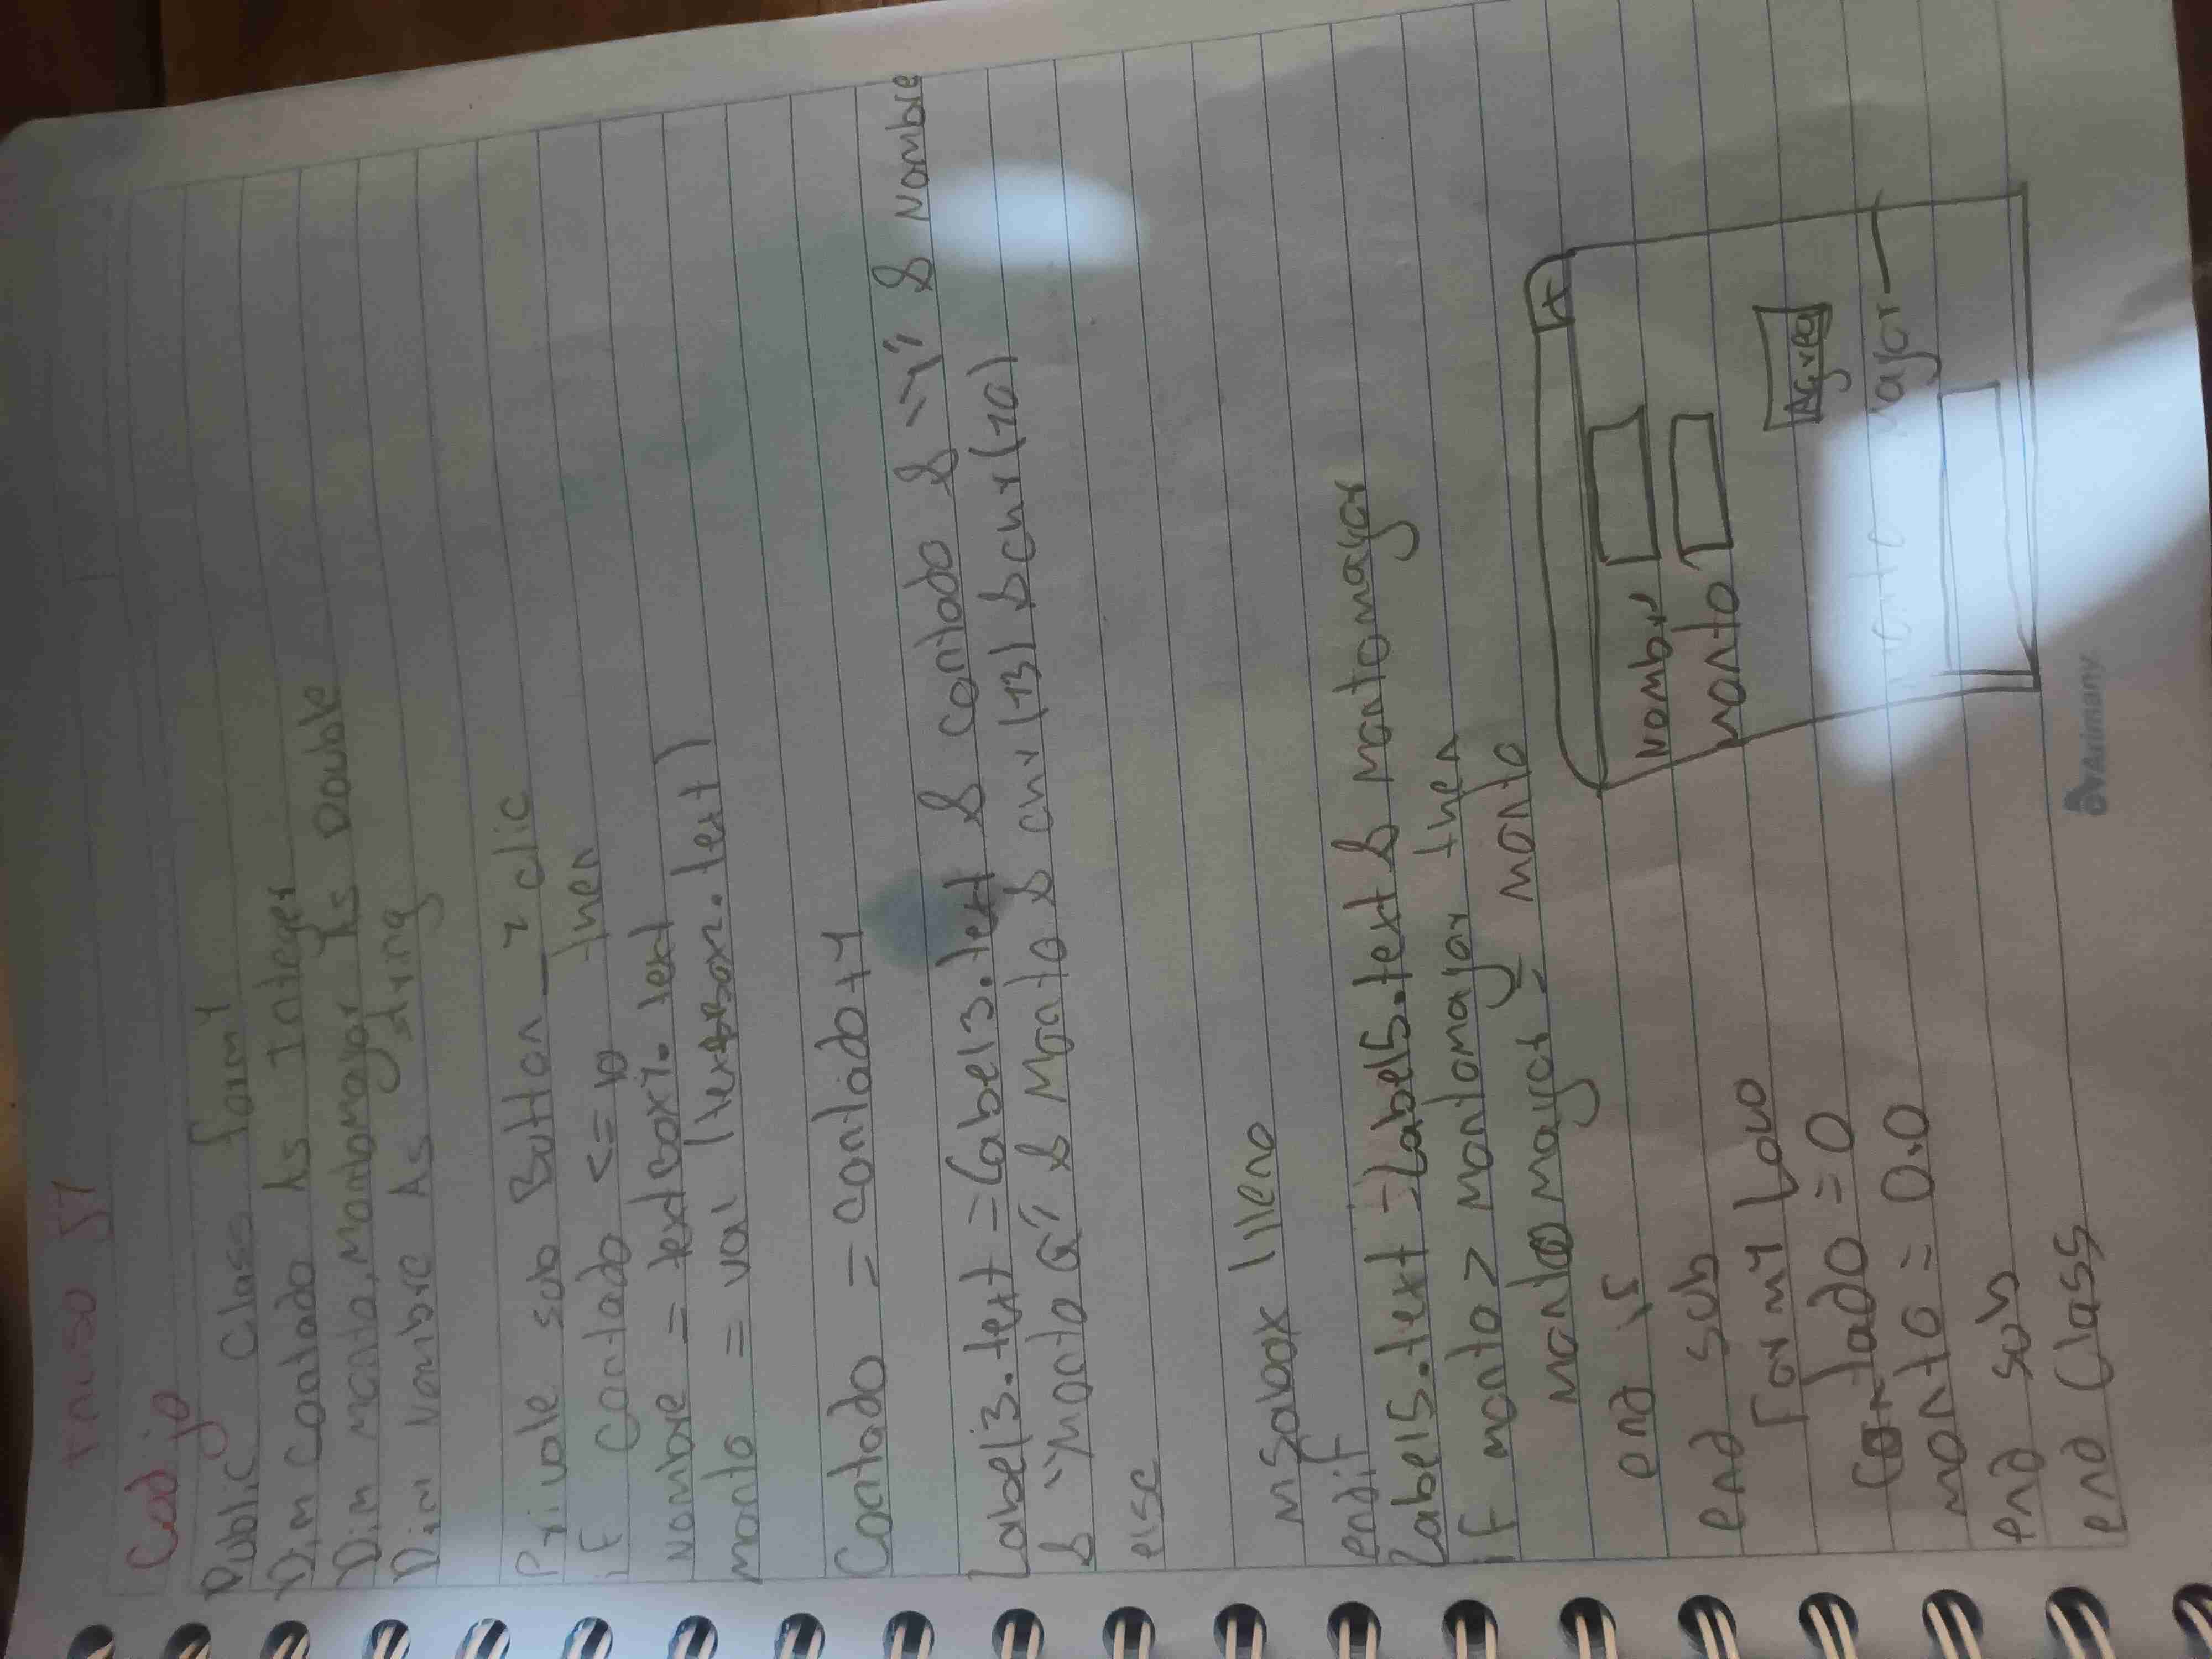 Codigo
Public Class form1
Dim Contado As Integer
Dim monto, montomayor As Double
Dim Nombre As string
Private sub Button_1 clic
if Contado <= 10 then
Nombre = textBox1.text
monto = val (textBox2.text)
Contado = contado+1
Label3.text = Label3.text & contado & "-" & Nombre
& "Monto Q" & Monto & chr(13) & chr(10)
else
msgbox lleno
endif
Label5.text = Label5.text & montomayor
if monto > montomayor then
montomayor = monto
end if
end sub
Form1 Load
Contado = 0
monto = 0.0
end sub
end Class
x
Nombre
Monto
Agreg
Arimany